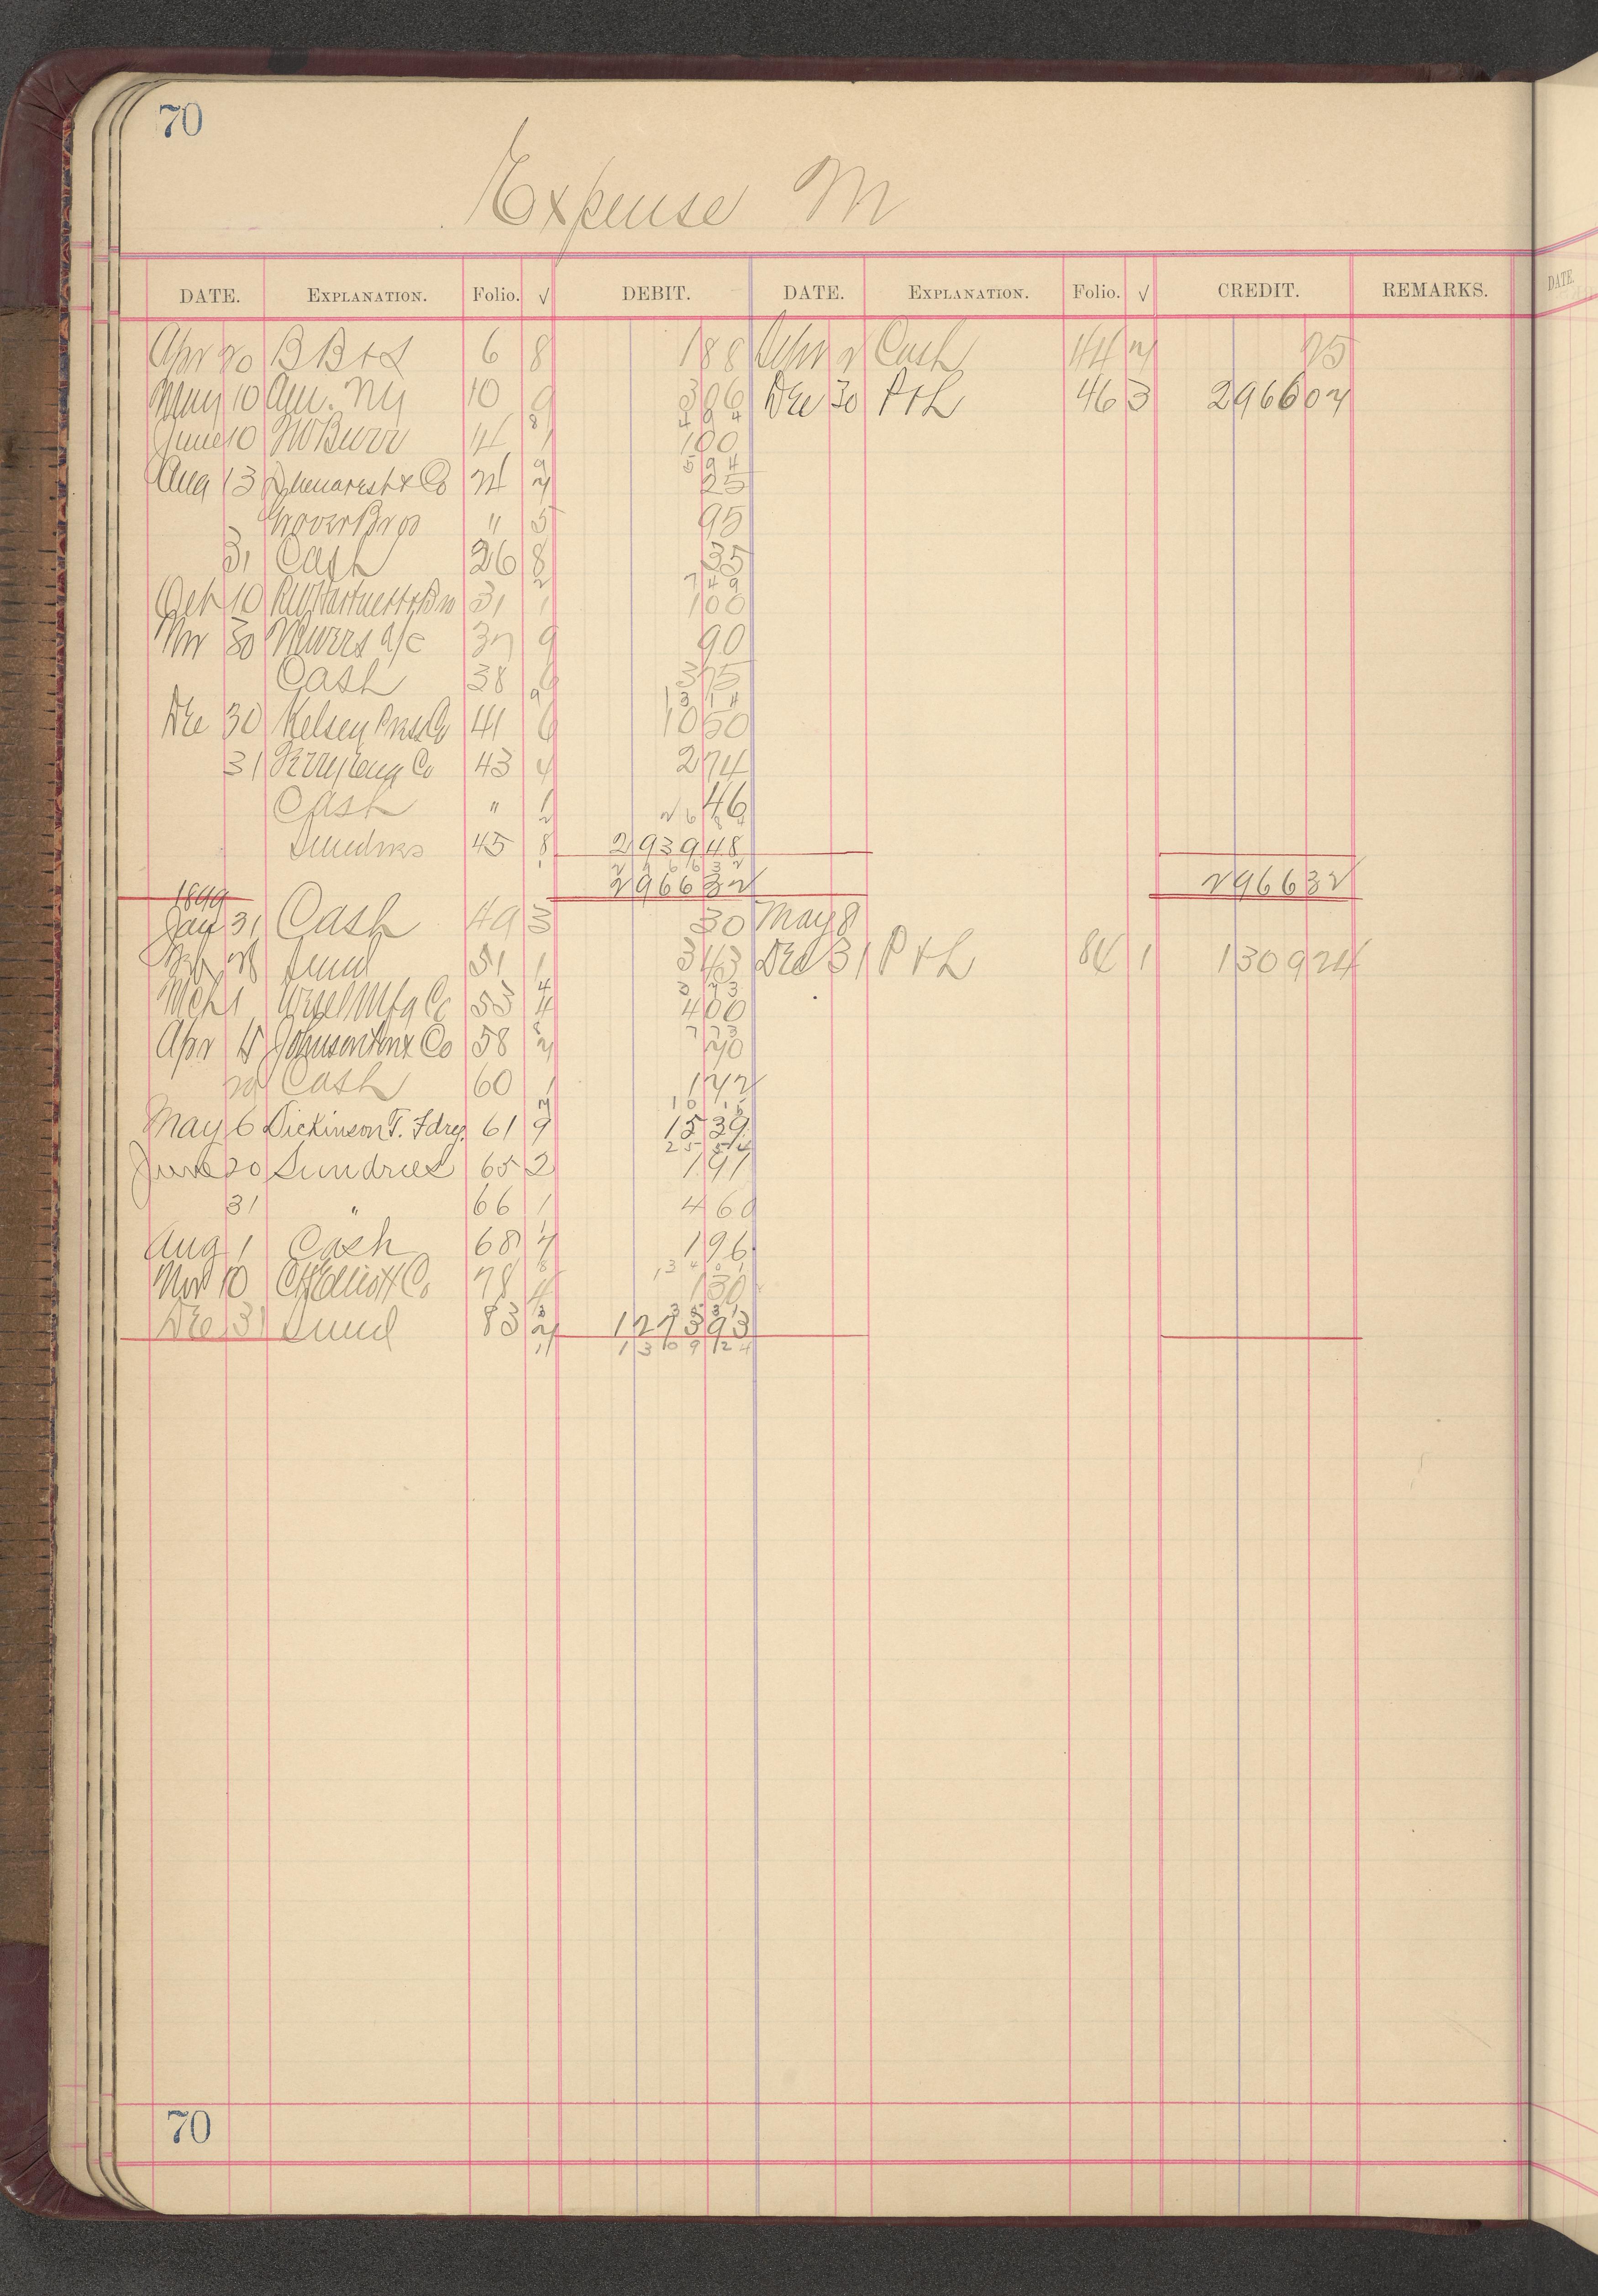 70
Expense M
DATE. EXPLANATION. Folio. √ DEBIT. DATE. EXPLANATION. Folio. √ CREDIT. REMARKS.
Apr 20 B B & S 6 8 1 88 Apr 2 Cash 44 25
May 10 Am. Ny 10 9 3 06 Dec 30 P & L 46 3 2966 07
4 94
June 10 1 1 00
5 94
Aug 13 & Co 2 25
Grover Bros " 5 95
31 Cash 26 8 35
7 49
Oct 10 31 1 1 00
Nov 30 a/c 37 9 90
Cash 38 6 3 75
13 14
Dec 30 Kelsey Press Co 41 6 10 50
31 Co 43 4 2 74
Cash " 1 46
Sundries 45 8 2939 48
2966 32
2966 32 2966 32
1899
Jan 31 Cash 49 3 30 May 8
Feb 28 Sund 51 1 3 43 Dec 31 P & L 84 1 1309 24
3 73
Mch 1 Mfg Co 53 4 4 00
7 73
Apr 15 Johnson Co 58 2 70
Cash 60 1 1 72
May 6 Dickinson T. Fdry. 61 9 15 39
25 54
June 20 Sundries 65 2 1 91
31 " 66 1 4 60
Aug 1 Cash 68 7 1 96
Nov 10 Co 78 4 1 30
35 31
Dec 31 Sund 83 2 1273 93
1309 24
70